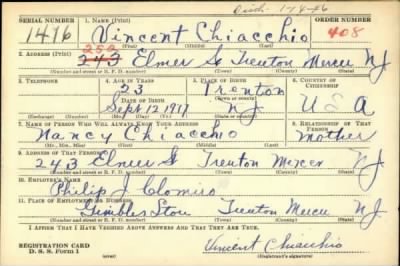 Disch. 1-74-46
SERIAL NUMBER 1. NAME (Print) ORDER NUMBER
1416 Vincent Chiacchio 408
2. ADDRESS (Print)
252
243 Elmer St Trenton Mercer NJ
(Number and street or R. F. D. number) (Town) (County) (State)
3. TELEPHONE 4. AGE IN YEARS 5. PLACE OF BIRTH 6. COUNTRY OF CITIZENSHIP
23 Trenton
DATE OF BIRTH (Town or county)
Sept 12 1917 N.J. U S A
(Exchange) (Number) (Mo.) (Day) (Yr.) (State or country)
7. NAME OF PERSON WHO WILL ALWAYS KNOW YOUR ADDRESS 8. RELATIONSHIP OF THAT PERSON
Nancy Chiacchio Mother
(Mr., Mrs., Miss) (First) (Middle) (Last)
9. ADDRESS OF THAT PERSON
243 Elmer St Trenton Mercer NJ
(Number and street or R. F. D. number) (Town) (County) (State)
10. EMPLOYER'S NAME
Philip J.
11. PLACE OF EMPLOYMENT OR BUSINESS
Store Trenton Mercer NJ
(Number and street or R. F. D. number) (Town) (County) (State)
I AFFIRM THAT I HAVE VERIFIED ABOVE ANSWERS AND THAT THEY ARE TRUE.
REGISTRATION CARD
D. S. S. Form 1 (over) Vincent Chiacchio
(Registrant's signature)